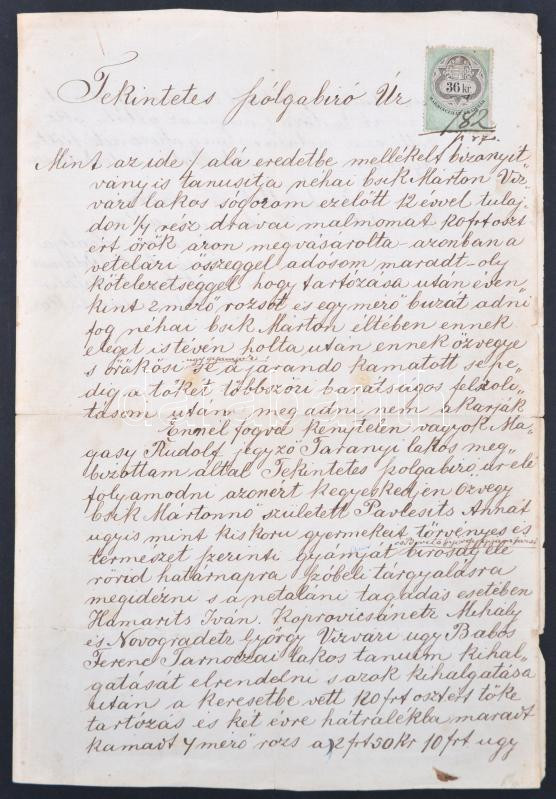 36 kr
Tekintetes szólgabiró Úr
Mint az ide ./. alá eredetbe mellékelt bizonyit„
ványis tanusitja néhai bsik Márton Viz„
vári lakos sógorom ezelött 12 évvel tulaj„
don 1/7 rész dravai malmomat 120 frt oszt
ért örök áron megvásárolta azonban a
vetelári összeggel adósom maradt oly
kötelezetséggel hogy tartózása után éven„
kint 2 mérö rozsot és egy mérö buzát adni
fog néhai bsik Márton éltében ennek
eleget is tévén holta után ennek özvegye
s örökösi a járandó kamatott sepe„
dig a tökét többszöri barátságos felszoli„
tásom után megadni nem akarják
Ennél fogva kénytelen vagyok Ma„
gasy Rudolf jegyzö Taranyi lakos meg„
bizottam által Tekintetes szolgabiró úr elé
folyamodni azonért kegyeskedjen özvegy
bsik Mártonnö született Pavlesits Annát
ugyis mint kiskoru gyermekeit törvényes és
természet szerinti gyámját biróság elé
rövid határnapra szóbeli tárgyalásra
megidézni s a netaláni tagadás esetében
Hamarits Iván, Koprovicsánetz Mihály
és Novogradetz György Vizvári ugy Babos
Ferenc Tarnoczai lakos tanuim kihal„
gatását elrendelni s azok kihalgatása
után a keresetbe vett 120 frt osztért töke
tartózás és két évre hátralékba maradt
kamadt 4 mérö rozs a 2 frt 50 kr 10 frt ugy